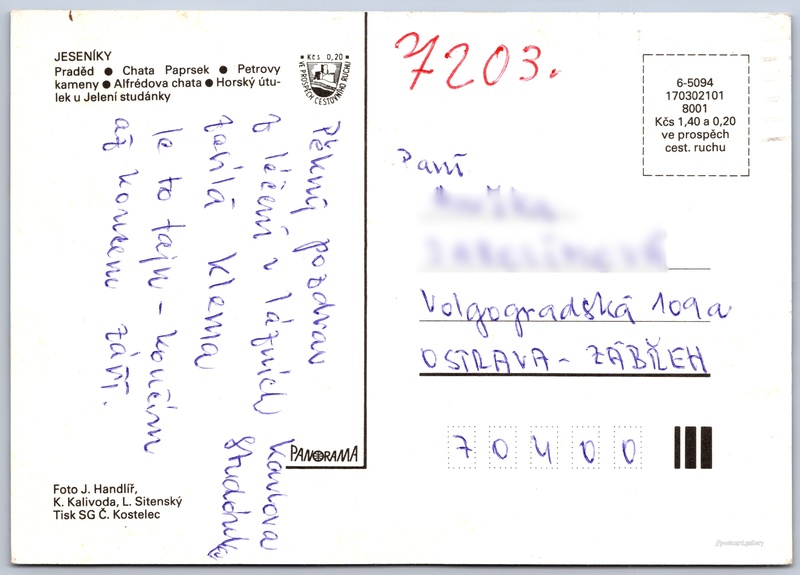 JESENÍKY
Praděd ● Chata Paprsek ● Petrovy
kameny ● Alfrédova chata ● Horský útu-
lek u Jelení studánky
Kčs 0,20
VE PROSPĚCH CESTOVNÍHO RUCHU
7203.
6-5094
170302101
8001
Kčs 1,40 a 0,20
ve prospěch
cest. ruchu
Pěkný pozdrav
z léčení v lázních Karlova
Studánka
zasílá Klema
Je to fajn - končím
až koncem září.
Paní
Volgogradská 109a
OSTRAVA - ZÁBŘEH
70400
PANORAMA
Foto J. Handlíř,
K. Kalivoda, L. Sitenský
Tisk SG Č. Kostelec
//postcard.gallery